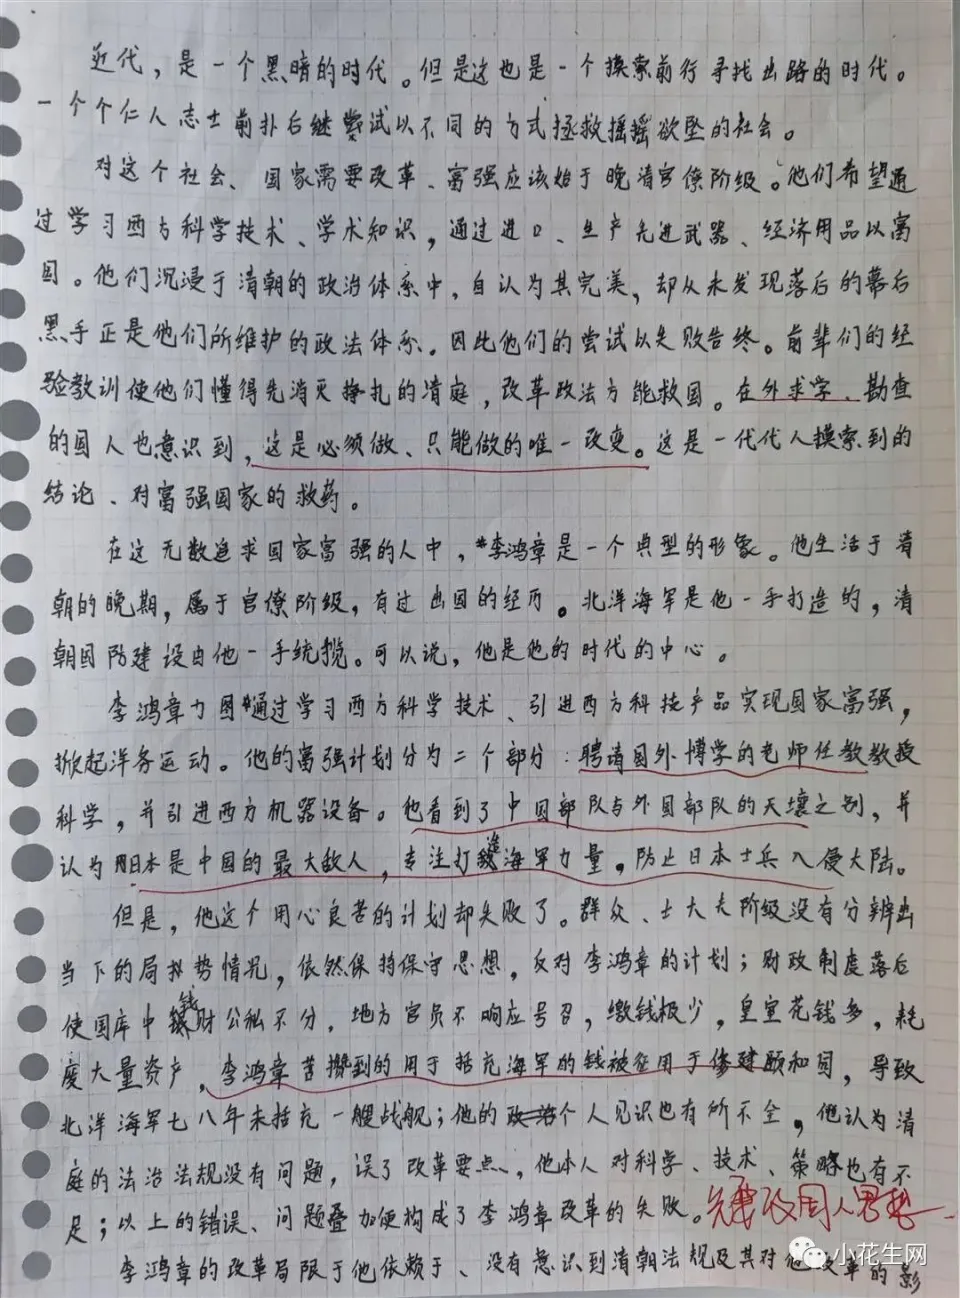 近代，是一个黑暗的时代。但是这也是一个摸索前行寻找出路的时代。
一个个仁人志士前扑后继尝试以不同的方式拯救摇摇欲坠的社会。
对这个社会、国家需要改革、富强应该始于晚清官僚阶级。他们希望通
过学习西方科学技术、学术知识，通过进口、生产先进武器、经济用品以富
国。他们沉浸于清朝的政治体系中，自认为其完美，却从未发现落后的幕后
黑手正是他们所维护的政法体系。因此他们的尝试以失败告终。前辈们的经
验教训使他们懂得先消灭挣扎的清庭，改革政法方能救国。在外求学、勘查
的国人也意识到，这是必须做、只能做的唯一改变。这是一代代人摸索到的
结论、对富强国家的救药。
在这无数追求国家富强的人中，李鸿章是一个典型的形象。他生活于清
朝的晚期，属于官僚阶级，有过出国的经历。北洋海军是他一手打造的，清
朝国防建设由他一手统揽。可以说，他是他的时代的中心。
李鸿章力图通过学习西方科学技术、引进西方科技产品实现国家富强，
掀起洋务运动。他的富强计划分为二个部分：聘请国外博学的老师任教教授
科学，并引进西方机器设备。他看到了中国部队与外国部队的天壤之别，并
认为日本是中国的最大敌人，专注打造海军力量。防止日本士兵入侵大陆。
但是，他这个用心良苦的计划却失败了。群众、士大夫阶级没有分辨出
当下的局势情况，依然保持保守思想，反对李鸿章的计划；财政制度落后
使国库中钱财公私不分，地方官员不响应号召，缴钱极少，皇室花钱多，耗
度大量资产，李鸿章苦攒到的用于括充海军的钱被征用于修建颐和园，导致
北洋海军七八年未括充一艘战舰；他的个人见识也有所不全，他认为清
庭的法治法规没有问题，误了改革要点，他本人对科学、技术、策略也有不
足；以上的错误、问题叠加便构成了李鸿章改革的失败。改国人思想
李鸿章的改革局限于他依赖于、没有意识到清朝法规及其对他改革的影
小花生网